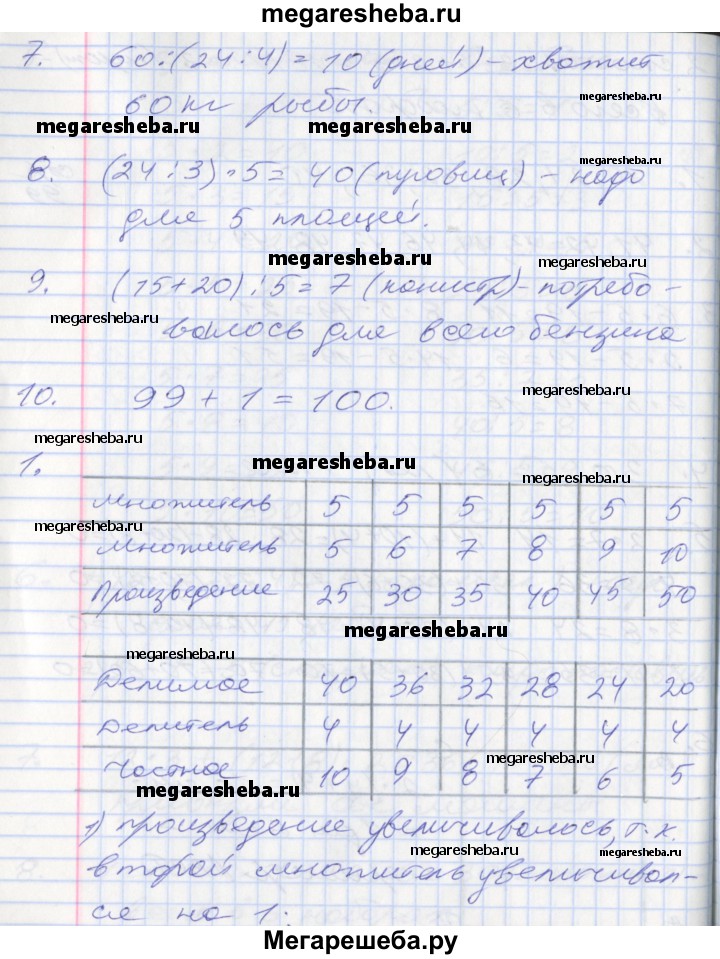 megaresheba.ru
7. 60:(24:4)=10 (дней) - хватит
60 кг рыбы.
megaresheba.ru megaresheba.ru
8. (24:3)·5=40 (пуговиц) - надо
для 5 плащей.
megaresheba.ru
9. (15+20):5=7 (канистр) - потребо-
megaresheba.ru
валось для всего бензина
megaresheba.ru
10. 99+1=100.
megaresheba.ru
megaresheba.ru
1.
megaresheba.ru
Множитель 5 5 5 5 5 5
megaresheba.ru
Множитель 5 6 7 8 9 10
Произведение 25 30 35 40 45 50
megaresheba.ru
megaresheba.ru
Делимое 40 36 32 28 24 20
Делитель 4 4 4 4 4 4
megaresheba.ru
Частное 10 9 8 7 6 5
megaresheba.ru
1) произведение увеличивалось, т.к.
megaresheba.ru
второй множитель увеличивал-
ся на 1;
Мегарешеба.ру